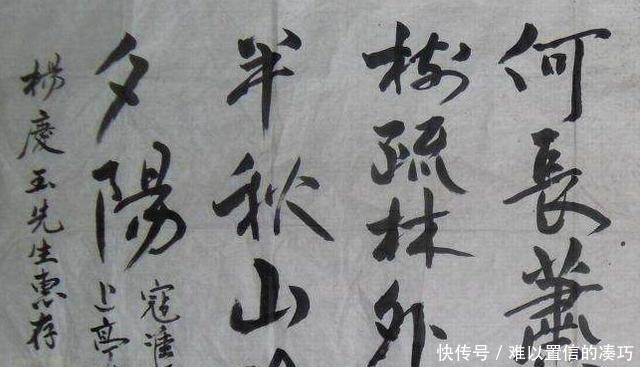 何長蕭
樹疏林外
半秋山
夕陽
寇準
上亭
楊慶玉先生惠存
快传号/难以置信的凑巧